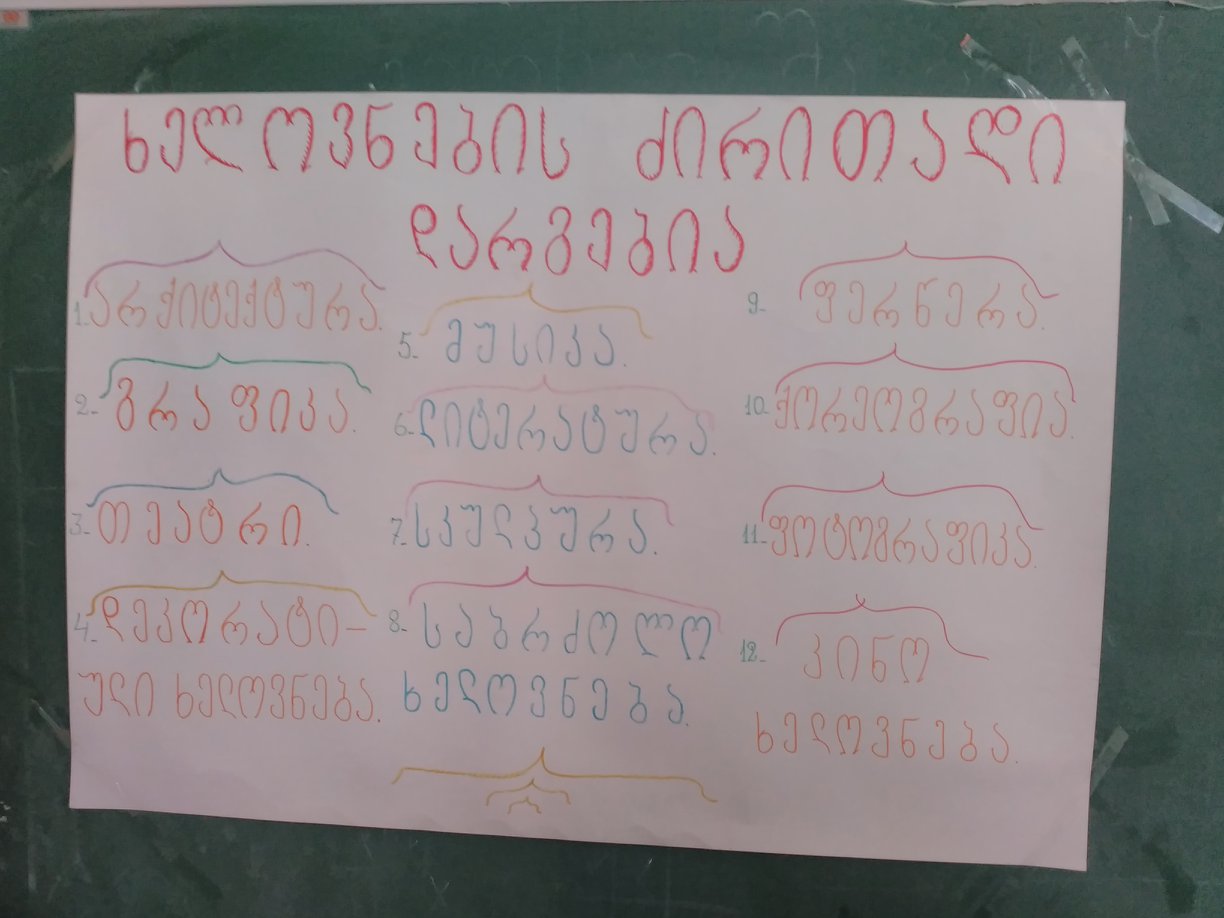 ხელოვნების ძირითადი
დარგებია
1. არქიტექტურა.
2- გრაფიკა.
3- თეატრი.
4- დეკორატი-
ული ხელოვნება.
5- მუსიკა.
6- ლიტერატურა.
7- სკულპურა.
8- საბრძოლო
ხელოვნება.
9- ფერწერა.
10- ქორეოგრაფია.
11- ფოტოგრაფიკა.
12- კინო
ხელოვნება.